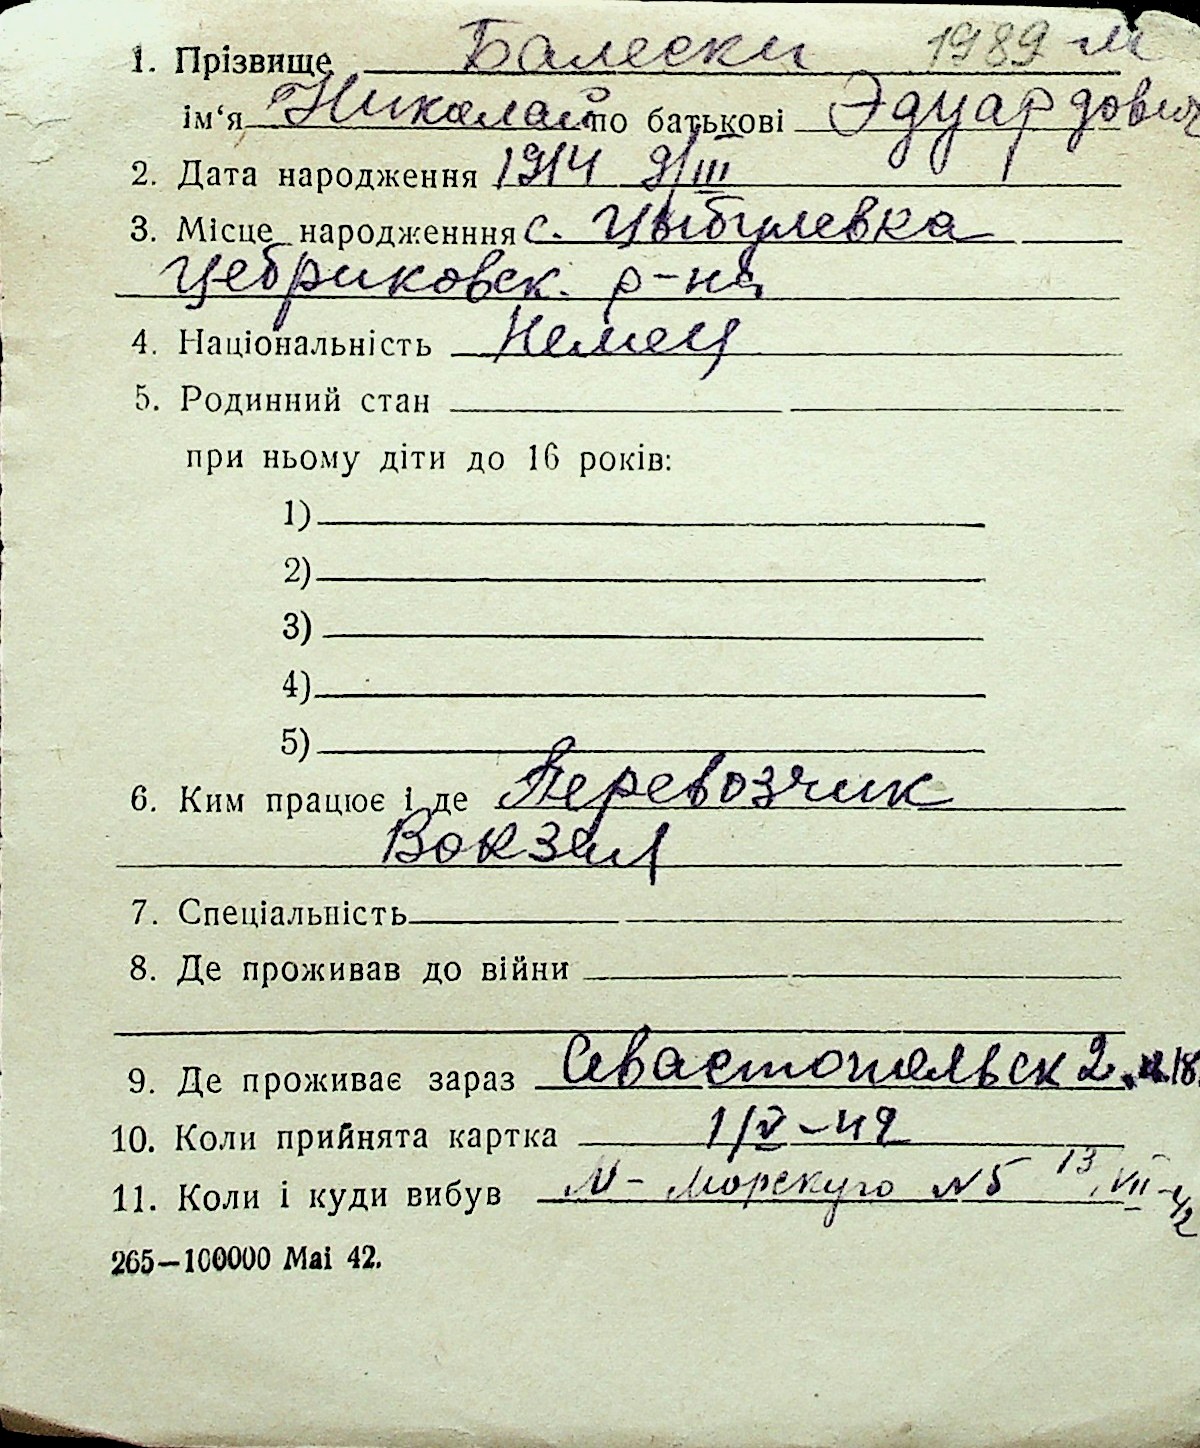 1. Прізвище Балески 1989 м
ім‘я Николай по батькові Эдуардович
2. Дата народження 1914 9/III
3. Місце народженння с. Цыбулевка
Цебриковск. р-на
4. Національність Немец
5. Родинний стан
при ньому діти до 16 років:
1)
2)
3)
4)
5)
6. Ким працює і де Перевозчик
Вокзал
7. Спеціальність
8. Де проживав до війни
9. Де проживає зараз Севастопольск 2
10. Коли прийнята картка 1/V-42
11. Коли і куди вибув Морскую №5 13.VII-42
265—100000 Mai 42.